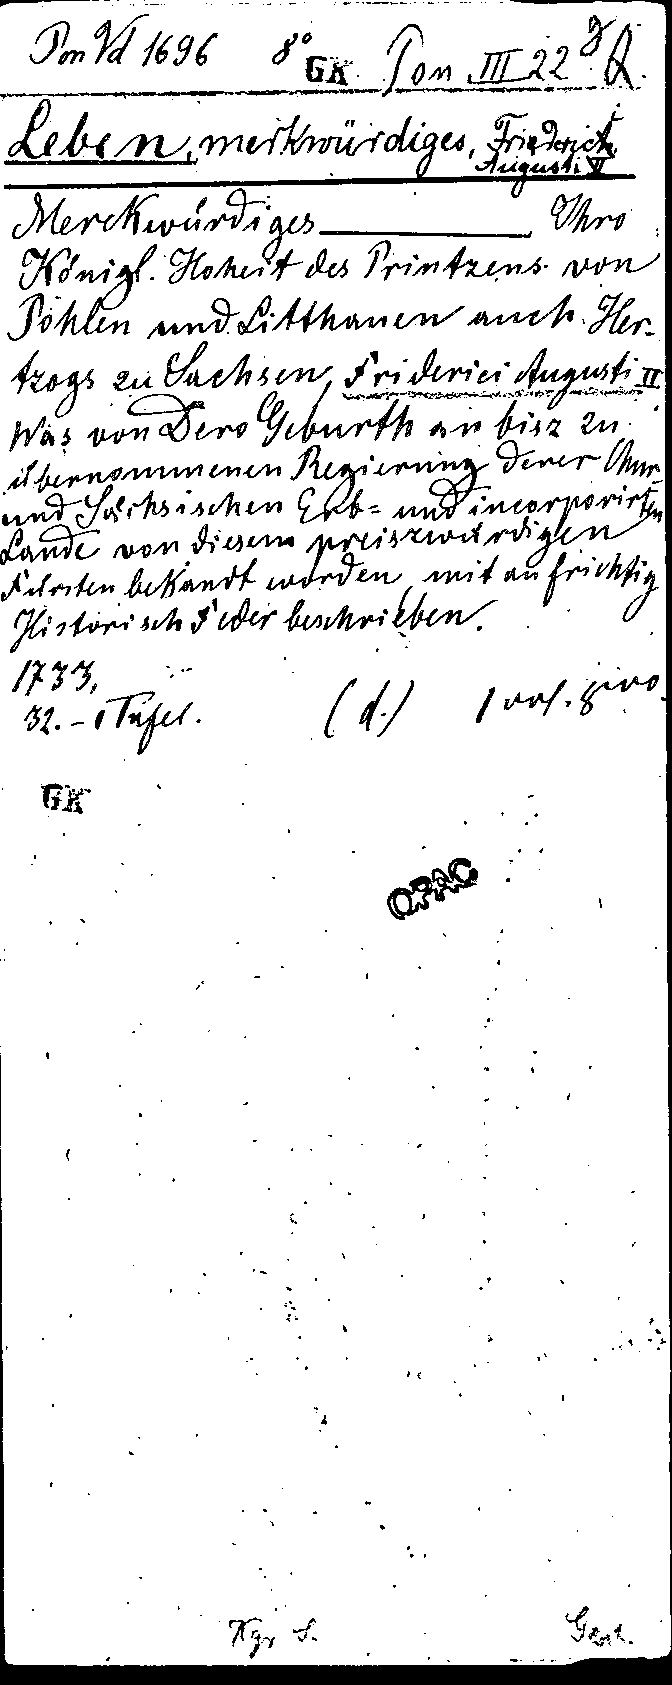 Pon Vd 1696 8° GK Pon III 22
Leben, merkwürdiges, Friedrich
Augusti II
Merckwürdiges ________ Ihro
Königl. Hoheit des Printzens von
Pohlen und Litthauen auch Her-
tzogs zu Sachsen, Friderici Augusti II
Was von Dero Geburth an bisz zu
übernommenen Regierung derer Chur-
und Sächsischen Erb= und incorporirten
Lande von diesem preiszwürdigen
Fürsten bekandt worden, mit aufrichtig
Historisch Feder beschrieben.
1733,
32. – 1 Tafel. (d.) 1 vol.
GK
OPAC
Kgr S. Gesch.